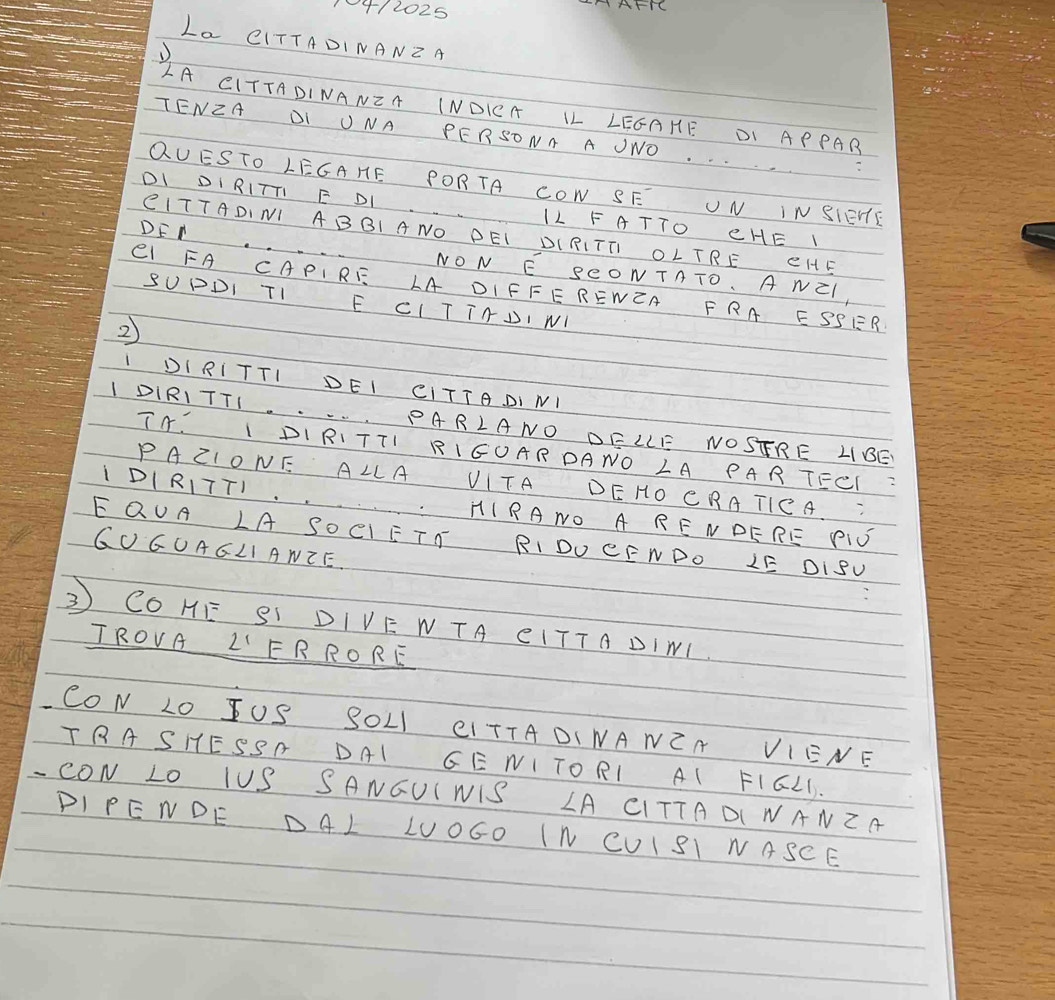 /04/2025
La CITTADINANZA
1)
LA CITTADINANZA INDICA IL LEGAME DI APPAR
TENZA DI UNA PERSONA A UNO ........ :
QUESTO LEGAME PORTA CON SÉ UN INSIEME
DI DIRITTI E DI ..... IL FATTO CHE I
CITTADINI ABBIANO DEI DIRITTI OLTRE CHE
DEI ..... NON É SCONTATO. ANZI,
CI FA CAPIRE LA DIFFERENZA FRA ESSER
SUDDITI E CITTADINI
2)
I DIRITTI DEI CITTADINI
I DIRITTI ..... PARLANO DELLE NOSTRE LIBE
TÀ. I DIRITTI RIGUARDANO LA PARTECI =
PAZIONE ALLA VITA DEMOCRATICA :
I DIRITTI ........ MIRANO A RENDERE PIÚ
EQUA LA SOCIETÀ RIDUCENDO LE DISU
GUGUAGLIANZE. :
3) COME SI DIVENTA CITTADINI.
TROVA L'ERRORE
- CON LO IUS SOLI CITTADINANZA VIENE
TRASMESSA DAI GENITORI AI FIGLI.
- CON LO IUS SANGUINIS LA CITTADINANZA
DIPENDE DAL LUOGO IN CUI SI NASCE